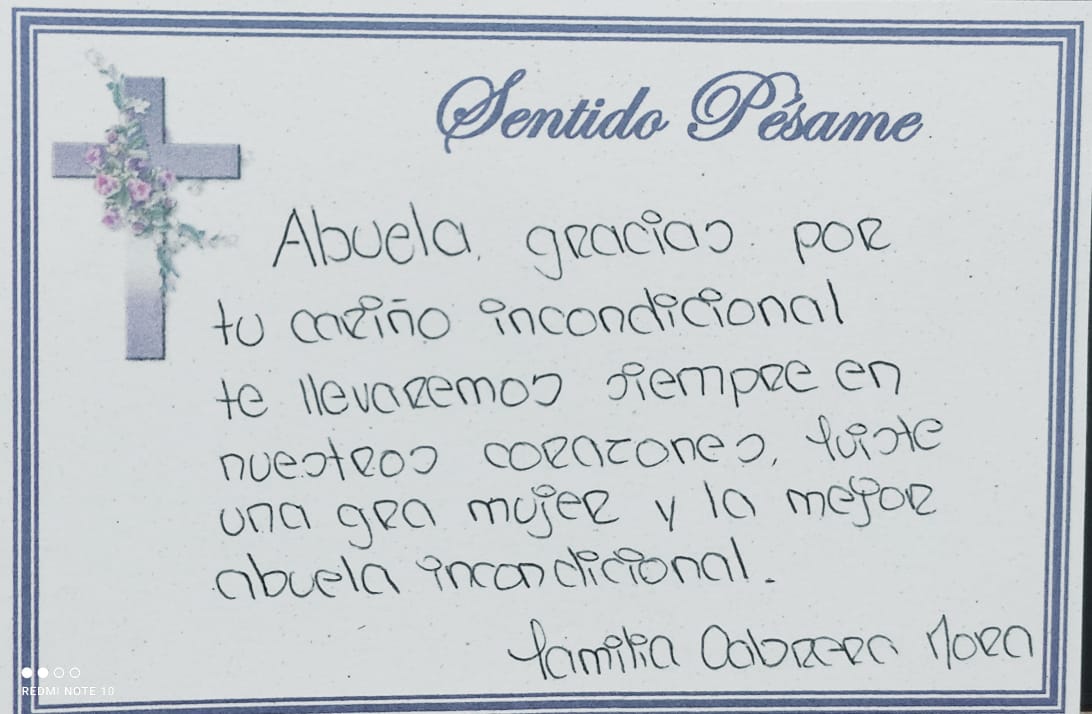 Sentido Pésame
Abuela, gracias por
tu cariño incondicional
te llevaremos siempre en
nuestros corazones, fuiste
una gra mujer y la mejor
abuela incondicional.
familia Cabrera Mora
REDMI NOTE 10